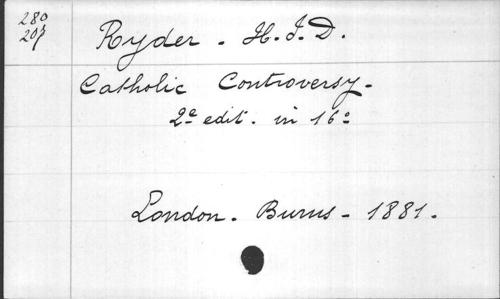 280
207
Ryder - H. I. D.
Catholic Controversy -
2e edit. in 16o
London - Burns - 1881.